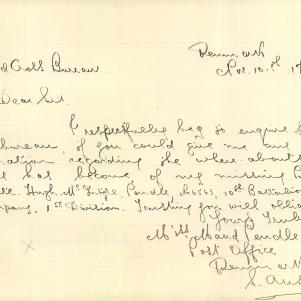 Penmark
Nov. 10th 19
d Cross Bureau.
Dear Sir.
I respectfully beg to enquire
bureau, if you could give me any
mation regarding the where about
has become of my missing
Hugh Mc Pendle, No 563, 10th Battalion
mpany, 1st Division. Trusting you will obli
Yours Trul
Miss Maud endle
Post Office
S. Aus